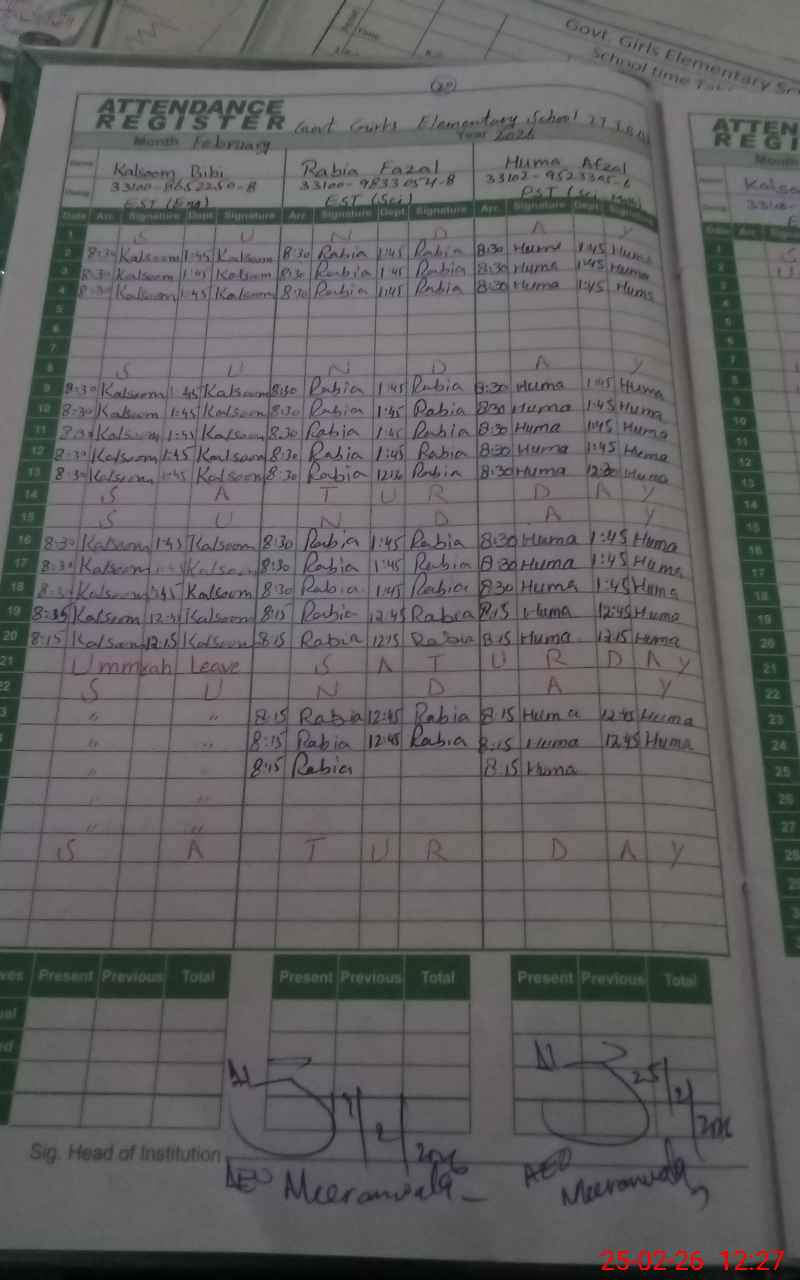 Govt. Girls Elementary
School time
(20)
ATTENDANCE
REGISTER Govt Girls Elementary School
Month February Year 2026
Name Kalsoom Bibi Rabia Fazal Huma Afzal
33100-8652250-8 33100-9833054-8 33102-9523305-6
EST (Eng) EST (Sci) PST (Sci
Date Arr. Signature Dept. Signature Arr. Signature Dept. Signature Arr. Signature Dept. Signature
1 S U N D A Y
2 8:30 Kalsoom 1:45 Kalsoom 8:30 Rabia 1:45 Rabia 8:30 Huma 1:45 Huma
3 8:30 Kalsoom 1:45 Kalsoom 8:30 Rabia 1:45 Rabia 8:30 Huma 1:45 Huma
4 8:30 Kalsoom 1:45 Kalsoom 8:30 Rabia 1:45 Rabia 8:30 Huma 1:45 Huma
5
6
7
8 S U N D A Y
9 8:30 Kalsoom 1:45 Kalsoom 8:30 Rabia 1:45 Rabia 8:30 Huma 1:45 Huma
10 8:30 Kalsoom 1:45 Kalsoom 8:30 Rabia 1:45 Rabia 8:30 Huma 1:45 Huma
11 8:30 Kalsoom 1:45 Kalsoom 8:30 Rabia 1:45 Rabia 8:30 Huma 1:45 Huma
12 8:30 Kalsoom 1:45 Kalsoom 8:30 Rabia 1:45 Rabia 8:30 Huma 1:45 Huma
13 8:30 Kalsoom 1:45 Kalsoom 8:30 Rabia Rabia 8:30 Huma 12:30 Huma
14 S A T U R D A Y
15 S U N D A Y
16 8:30 Kalsoom 1:45 Kalsoom 8:30 Rabia 1:45 Rabia 8:30 Huma 1:45 Huma
17 8:30 Kalsoom 1:45 Kalsoom 8:30 Rabia 1:45 Rabia 8:30 Huma 1:45 Huma
18 8:30 Kalsoom 1:45 Kalsoom 8:30 Rabia 1:45 Rabia 8:30 Huma 1:45 Huma
19 Kalsoom 12:45 Kalsoom 8:15 Rabia 12:45 Rabia 8:15 Huma 12:45 Huma
20 8:15 Kalsoom 12:15 Kalsoom 8:15 Rabia 12:15 Rabia 8:15 Huma 12:15 Huma
21 Ummrah Leave S A T U R D A Y
22 S U N D A Y
3 " " 8:15 Rabia 12:45 Rabia 8:15 Huma 12:45 Huma
" " 8:15 Rabia 12:45 Rabia 8:15 Huma 12:45 Huma
" " 8:15 Rabia 8:15 Huma
" "
" "
S A T U R D A Y
Present Previous Total Present Previous Total Present Previous Total
Sig. Head of Institution
25/2/2026
AEO Meeranwala
AEO Meeranwala
ATTEN
REGI
Month
Kalso
Date Arr.
1 S
2 U
3
4
5
6
7
8
9
10
11
12
13
14
15
16
17
18
19
20
21
22
23
24
25
26
27
28
25-02-26 12:27